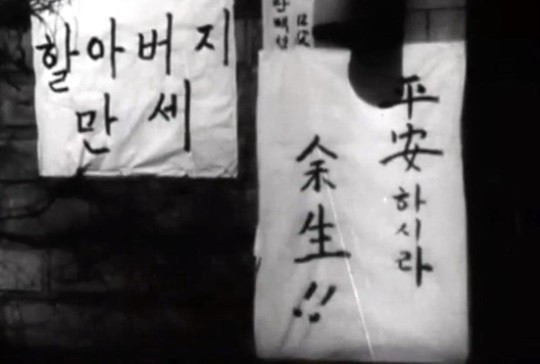 할아버지
만세
平安하시라
余生!!